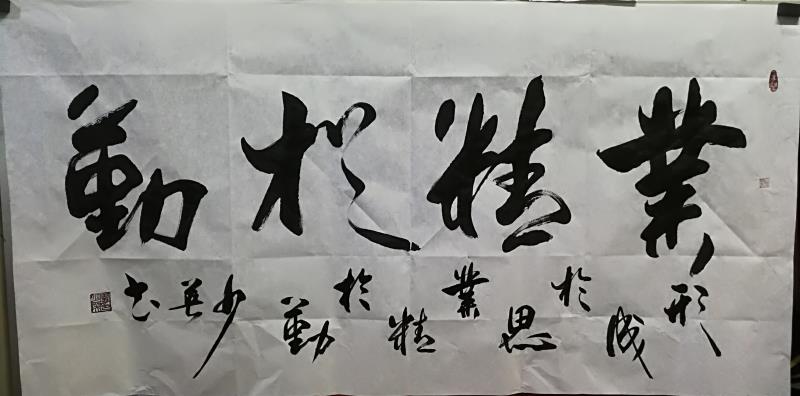 業精於勤
形成於思業精於勤少英书